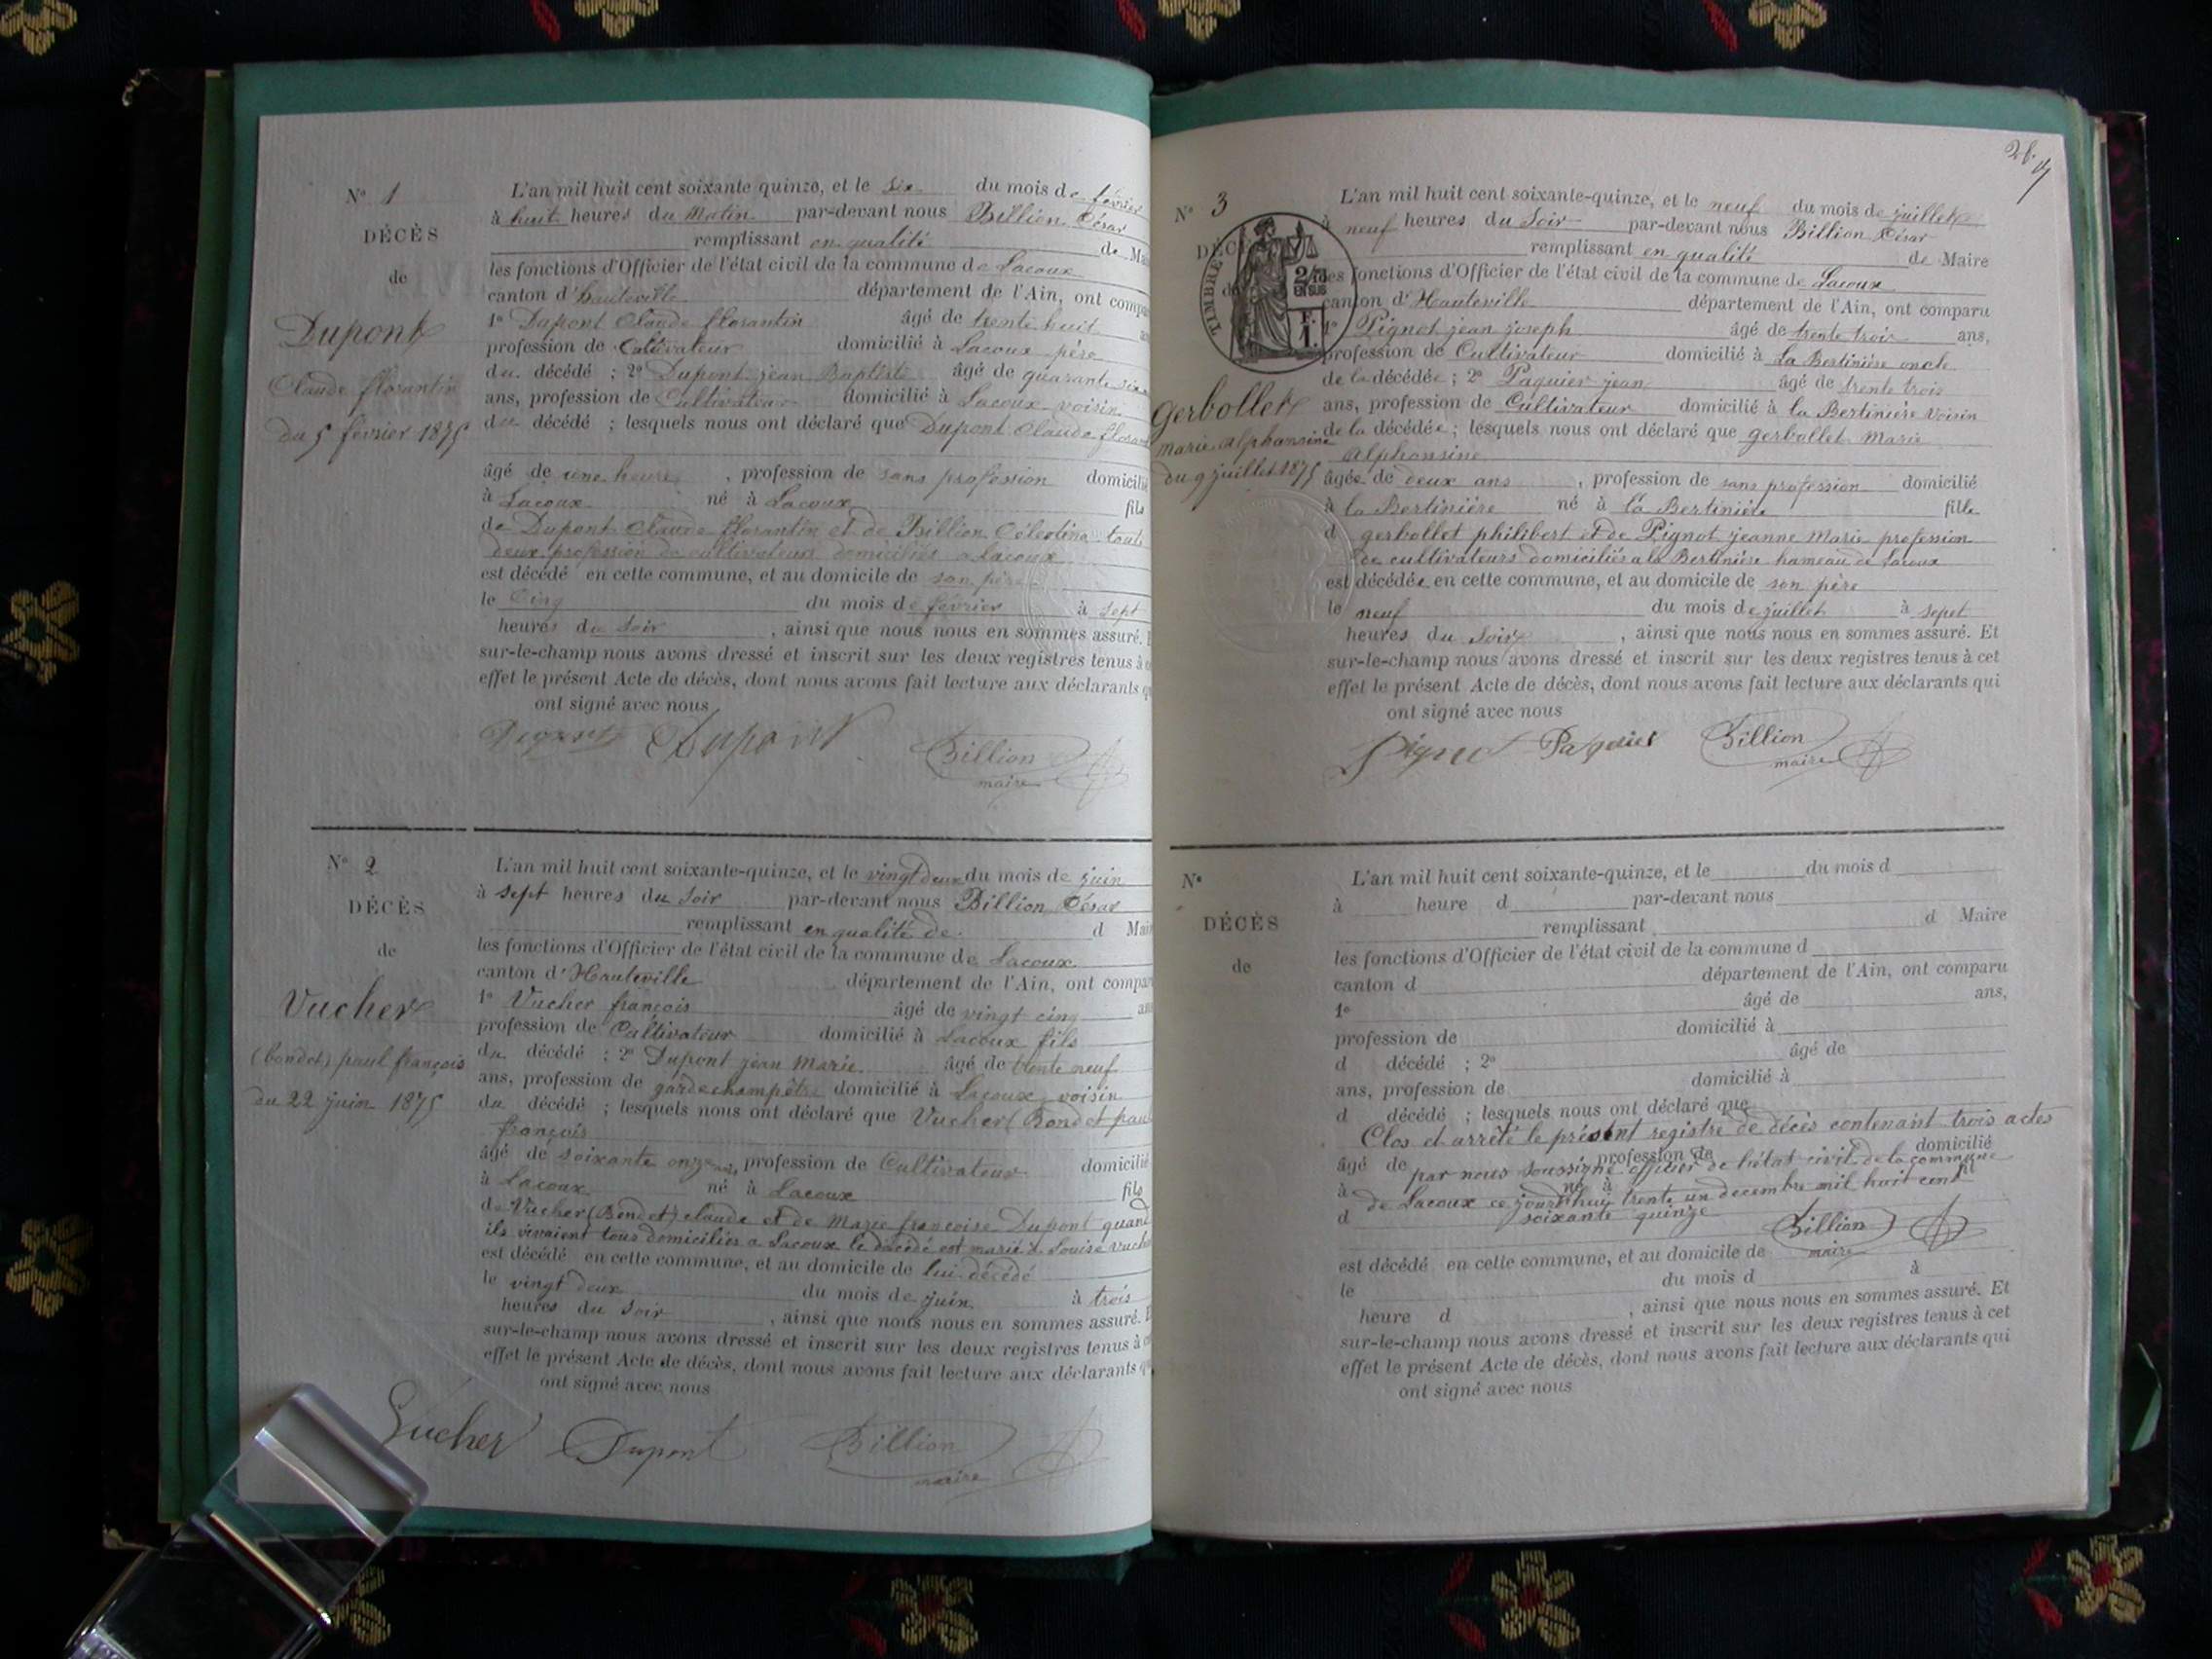 N° 1
DÉCÈS
de
Dupont
Claude florantin
du 5 février 1875
L'an mil huit cent soixante quinze, et le six du mois de février
à huit heures du Matin par-devant nous Billion César
remplissant en qualité de Mai
les fonctions d'Officier de l'état civil de la commune de Lacoux
canton d'hauteville département de l'Ain, ont compa
1° Dupont Claude florantin âgé de trente huit an
profession de Cultivateur domicilié à Lacoux père
du décédé ; 2° Dupont jean Baptiste âgé de quarante six
ans, profession de Cultivateur domicilié à Lacoux voisin
du décédé ; lesquels nous ont déclaré que Dupont Claude floran
âgé de une heure, profession de sans profession domicilié
à Lacoux né à Lacoux fils
de Dupont Claude florantin et de Billion Célestine tout
deux profession de cultivateurs domiciliés a Lacoux
est décédé en cette commune, et au domicile de son père
le Cinq du mois de février à sept
heures du Soir, ainsi que nous nous en sommes assuré. E
sur-le-champ nous avons dressé et inscrit sur les deux registres tenus à c
effet le présent Acte de décès, dont nous avons fait lecture aux déclarants q
ont signé avec nous
Dupont Dupont Billion
maire
N° 2
DÉCÈS
de
Vucher
(bondet) paul françois
du 22 juin 1875
L'an mil huit cent soixante-quinze, et le vingt deux du mois de juin
à sept heures du Soir par-devant nous Billion César
remplissant en qualité de d Mair
les fonctions d'Officier de l'état civil de la commune de Lacoux
canton d'Hauteville département de l'Ain, ont compar
1° Vucher françois âgé de vingt cinq an
profession de Cultivateur domicilié à Lacoux fils
du décédé ; 2° Dupont jean Marie âgé de trente neuf
ans, profession de garde champêtre domicilié à Lacoux voisin
du décédé ; lesquels nous ont déclaré que Vucher (Bondet pau
françois
âgé de soixante onze ans, profession de Cultivateur domicilié
à Lacoux né à Lacoux fils
de Vucher (Bondet) claude et de Marie francoise Dupont quand
ils vivaient tous domiciliés a Lacoux le décédé est marié à Louise Vuch
est décédé en cette commune, et au domicile de lui décédé
le vingt deux du mois de juin à trois
heures du Soir, ainsi que nous nous en sommes assuré. E
sur-le-champ nous avons dressé et inscrit sur les deux registres tenus à c
effet le présent Acte de décès, dont nous avons fait lecture aux déclarants q
ont signé avec nous
Vucher Dupont Billion
maire
N° 3
DÉCÈ
TIMBRE
2/10
EN SUS
F.
1.
gerbollet
marie alphonsine
du 9 juillet 1875
L'an mil huit cent soixante-quinze, et le neuf du mois de juillet
à neuf heures du Soir par-devant nous Billion César
remplissant en qualité de Maire
les fonctions d'Officier de l'état civil de la commune de Lacoux
canton d'Hauteville département de l'Ain, ont comparu
1° Pignot jean joseph âgé de trente trois ans,
profession de Cultivateur domicilié à La Bertinière oncle
de la décédée ; 2° Paquier jean âgé de trente trois
ans, profession de Cultivateur domicilié à la Bertinière voisin
de la décédée ; lesquels nous ont déclaré que gerbollet Marie
alphonsine
âgée de deux ans, profession de sans profession domicilié
à la Bertinière né à la Bertinière fille
d gerbollet philibert et de Pignot jeanne Marie profession
de cultivateurs domiciliés a la Bertinière hameau de Lacoux
est décédée en cette commune, et au domicile de son père
le neuf du mois de juillet à sept
heures du Soir, ainsi que nous nous en sommes assuré. Et
sur-le-champ nous avons dressé et inscrit sur les deux registres tenus à cet
effet le présent Acte de décès, dont nous avons fait lecture aux déclarants qui
ont signé avec nous
Pignot Paquier Billion
maire
N°
DÉCÈS
de
L'an mil huit cent soixante-quinze, et le du mois d
à heure d par-devant nous
remplissant d Maire
les fonctions d'Officier de l'état civil de la commune d
canton d département de l'Ain, ont comparu
1° âgé de ans,
profession de domicilié à
d décédé ; 2° âgé de
ans, profession de domicilié à
d décédé ; lesquels nous ont déclaré que
Clos et arrêté le présent registre de décès contenant trois actes
âgé de profession de domicilié
par nous soussigné officier de l'état civil de la commune
à né à fil
de Lacoux ce jourd'hui trente un decembre mil huit cent
d soixante quinze Billion
maire
est décédé en cette commune, et au domicile de
le du mois d à
heure d, ainsi que nous nous en sommes assuré. Et
sur-le-champ nous avons dressé et inscrit sur les deux registres tenus à cet
effet le présent Acte de décès, dont nous avons fait lecture aux déclarants qui
ont signé avec nous